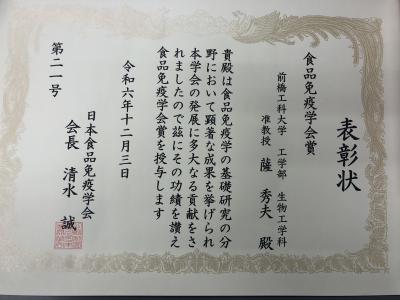 表彰状
食品免疫学会賞
前橋工科大学 工学部 生物工学科
准教授 薩 秀夫 殿
貴殿は食品免疫学の基礎研究の分
野において顕著な成果を挙げられ
本学会の発展に多大なる貢献をさ
れましたので茲にその功績を讃え
食品免疫学会賞を授与します
令和六年十二月三日
日本食品免疫学会
会長 清水 誠
第二一号